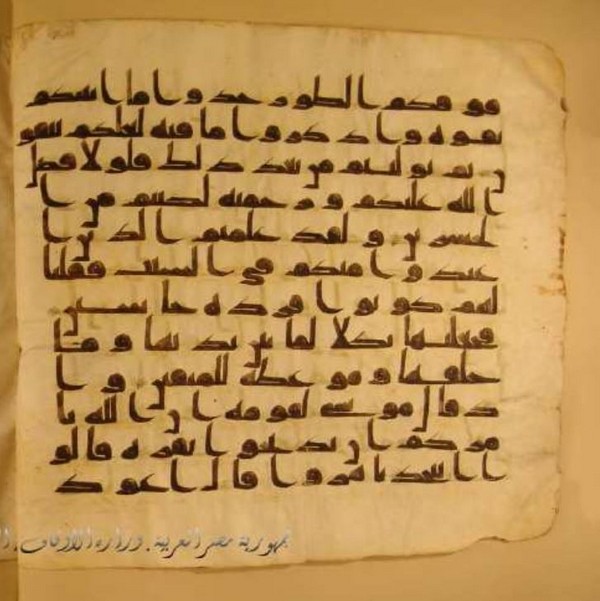 فوقكم الطور خذوا ما اتينكم
بقوة واذكروا ما فيه لعلكم تتقو
ن ثم توليتم من بعد ذلك فلولا فضل
الله عليكم ورحمته لكنتم من ا
لخسرين ولقد علمتم الذين ا
عتدوا منكم في السبت فقلنا
لهم كونوا قردة خاسين
فجعلنها نكلا لما بين يديها وما
خلفها وموعظة للمتقين وا
ذ قال موسى لقومه ان الله يا
مركم ان تذبحوا بقرة قالو
ا اتتخذنا هزوا قال اعوذ
جمهورية مصر العربية . وزارة الاوقاف .